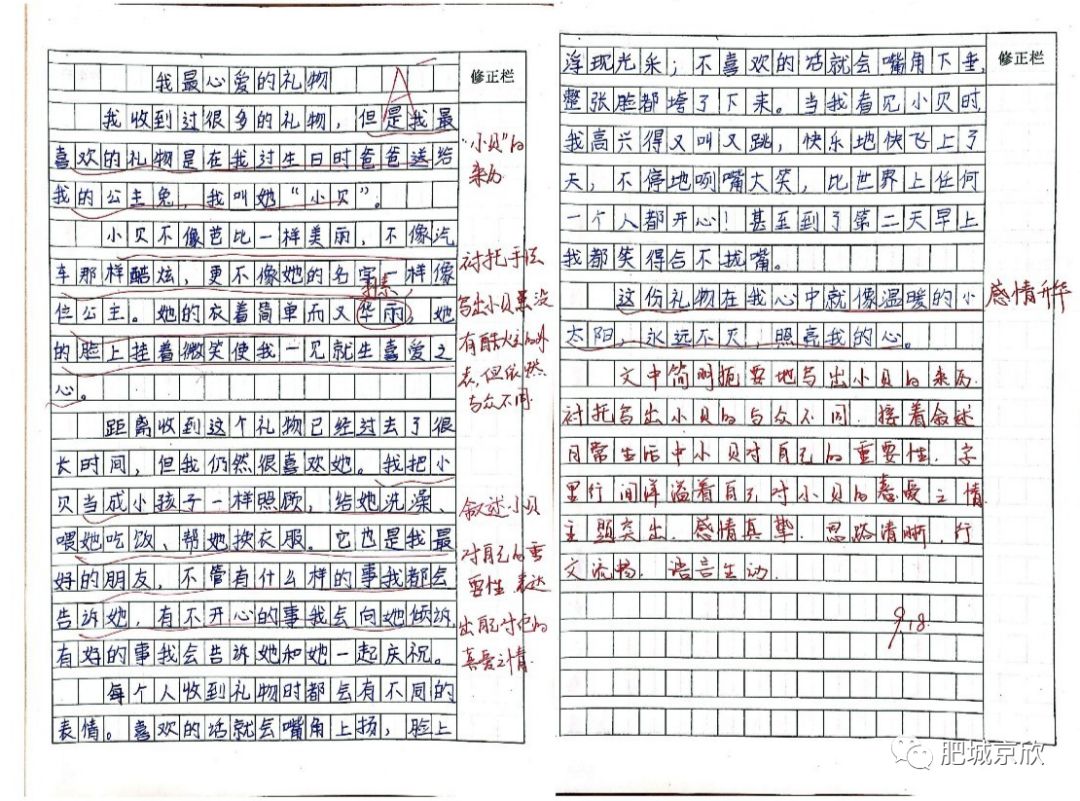 我最心爱的礼物
A
修正栏
我收到过很多的礼物，但是我最
喜欢的礼物是在我过生日时爸爸送给
我的公主兔，我叫她“小贝”。
“小贝”的
来历
小贝不像芭比一样美丽，不像汽
车那样酷炫，更不像她的名字一样像
位公主。她的衣着简单而又华丽，她
的脸上挂着微笑使我一见就生喜爱之
心。
朴素
衬托手法
写出小贝虽没
有酷炫的外
表，但依然
与众不同.
距离收到这个礼物已经过去了很
长时间，但我仍然很喜欢她。我把小
贝当成小孩子一样照顾，给她洗澡、
喂她吃饭、帮她换衣服。它也是我最
好的朋友，不管有什么样的事我都会
告诉她，有不开心的事我会向她倾诉，
有好的事我会告诉她和她一起庆祝。
叙述小贝
对自己的重
要性.表达
出自己对它的
真爱之情.
每个人收到礼物时都会有不同的
表情。喜欢的话就会嘴角上扬，脸上
修正栏
浮现光采；不喜欢的话就会嘴角下垂，
整张脸都垮了下来。当我看见小贝时
我高兴得又叫又跳，快乐地快飞上了
天，不停地咧嘴大笑，比世界上任何
一个人都开心！甚至到了第二天早上
我都笑得合不拢嘴。
这份礼物在我心中就像温暖的小
太阳，永远不灭，照亮我的心。
感情升华
文中简明扼要地写出小贝的来历.
衬托写出小贝的与众不同.接着叙述
日常生活中小贝对自己的重要性.字
里行间洋溢着自己对小贝的喜爱之情
主题突出.感情真挚.思路清晰，行
文流畅.语言生动.
9.18
肥城京欣